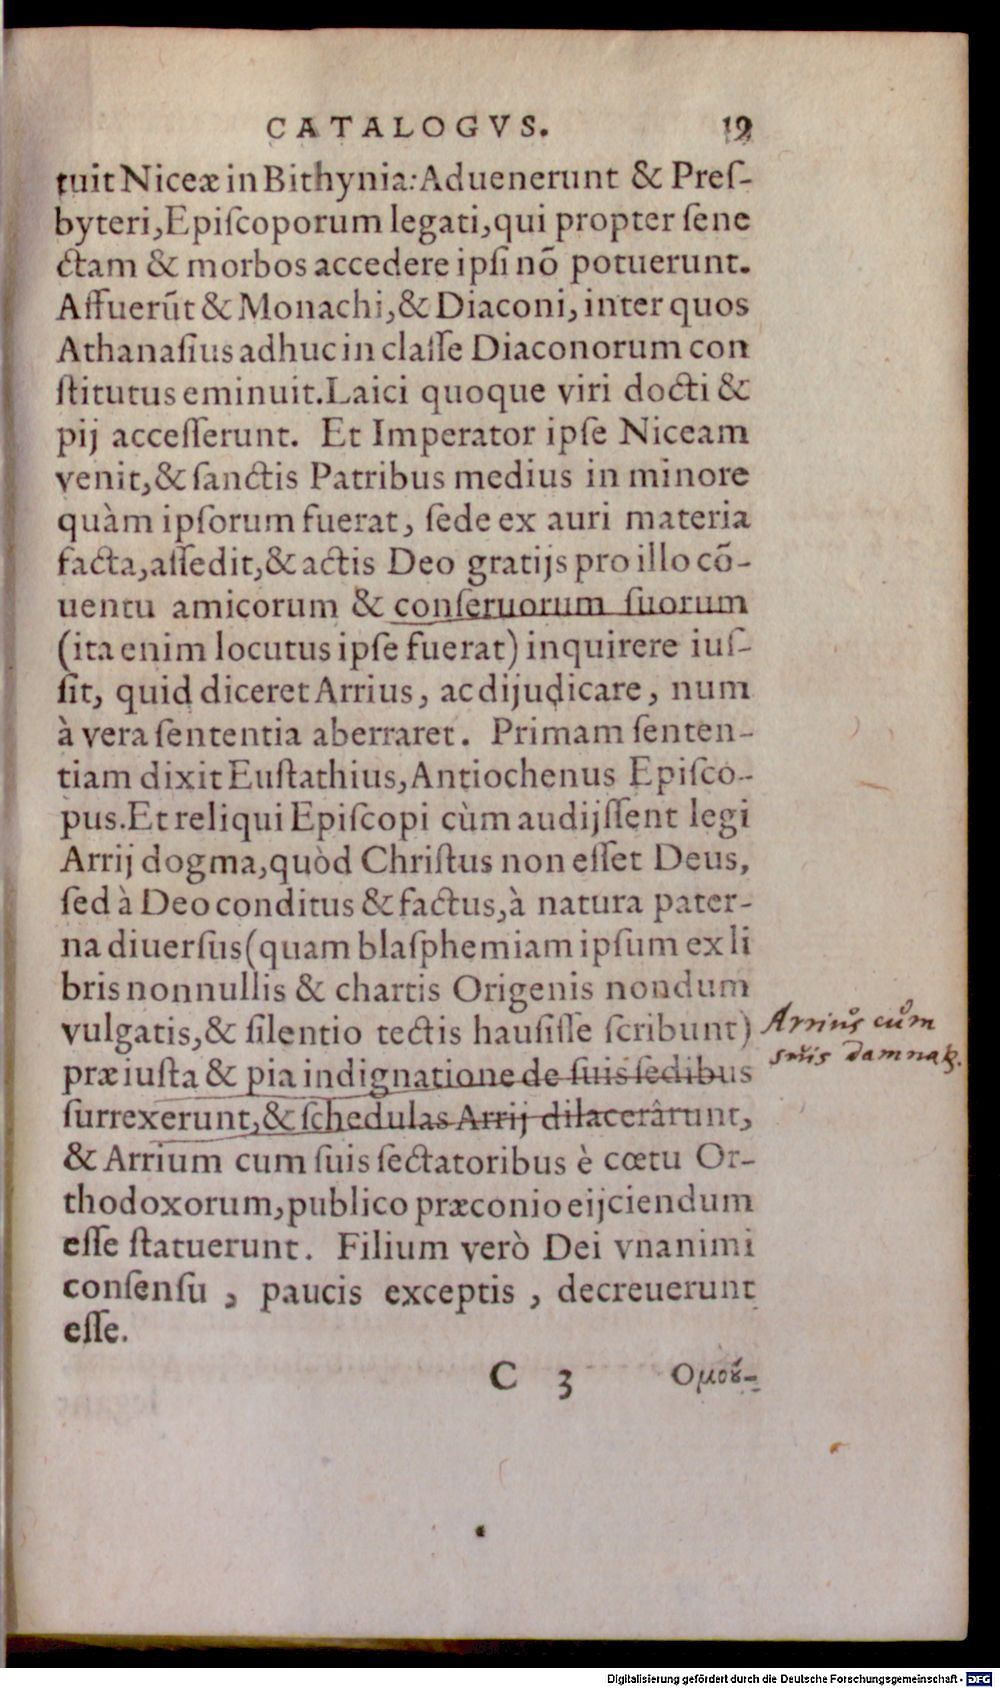 CATALOGVS. 19
tuit Niceæ in Bithynia: Aduenerunt & Preſ-
byteri, Epiſcoporum legati, qui propter ſene
ctam & morbos accedere ipſi nõ potuerunt.
Affuerũt & Monachi, & Diaconi, inter quos
Athanaſius adhuc in claſſe Diaconorum con
ſtitutus eminuit. Laici quoque viri docti &
pij acceſſerunt. Et Imperator ipſe Niceam
venit, & ſanctis Patribus medius in minore
quàm ipſorum fuerat, ſede ex auri materia
facta, aſſedit, & actis Deo gratijs pro illo cõ-
uentu amicorum & conſeruorum ſuorum
(ita enim locutus ipſe fuerat) inquirere iuſ-
ſit, quid diceret Arrius, ac dijudicare, num
à vera ſententia aberraret. Primam ſenten-
tiam dixit Euſtathius, Antiochenus Epiſco-
pus. Et reliqui Epiſcopi cùm audijſſent legi
Arrij dogma, quòd Chriſtus non eſſet Deus,
ſed à Deo conditus & factus, à natura pater-
na diuerſus (quam blaſphemiam ipſum ex li
bris nonnullis & chartis Origenis nondum
vulgatis, & ſilentio tectis hauſiſſe ſcribunt)
præ iuſta & pia indignatione de ſuis ſedibus
ſurrexerunt, & ſchedulas Arrij dilacerârunt,
& Arrium cum ſuis ſectatoribus è cœtu Or-
thodoxorum, publico præconio eijciendum
eſſe ſtatuerunt. Filium verò Dei vnanimi
conſenſu, paucis exceptis, decreuerunt
eſſe.
C 3 Ομού-
Arrius cum
suis damnat.
Digitalisierung gefördert durch die Deutsche Forschungsgemeinschaft - DFG